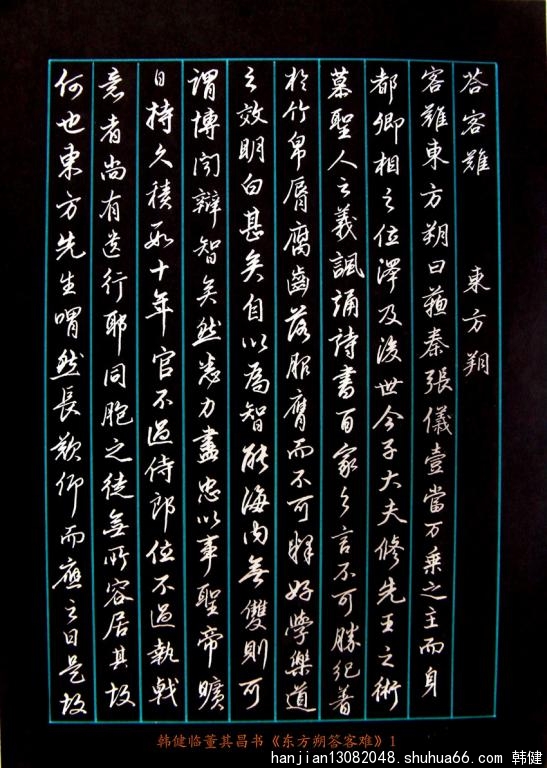 答客難 東方朔
客難東方朔曰蘇秦張儀壹當万乘之主而身
都卿相之位澤及後世今子大夫修先王之術
慕聖人之義諷誦詩書百家之言不可勝紀著
於竹帛脣腐齒落服膺而不可釋好學樂道
之效明白甚矣自以為智能海內無雙則可
謂博聞辯智矣然悉力盡忠以事聖帝曠
日持久積數十年官不過侍郎位不過執戟
意者尚有遺行耶同胞之徒無所容居其故
何也東方先生喟然長歎仰而應之曰是故
韩健临董其昌书《东方朔答客难》1
hanjian13082048.shuhua66.com 韩健